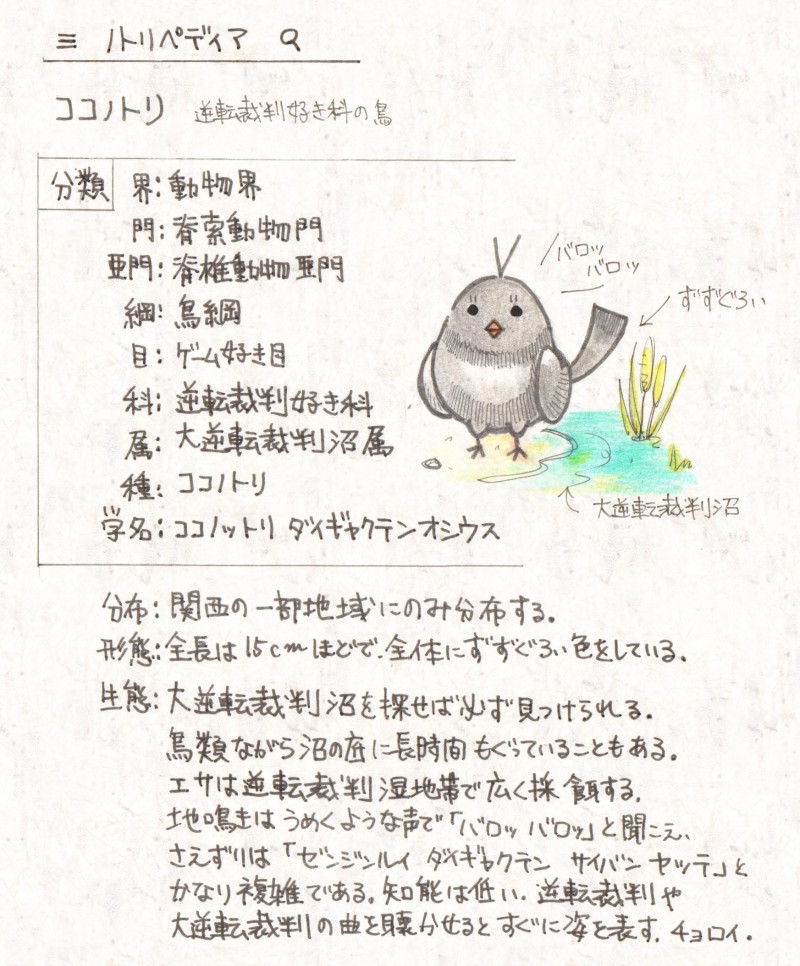 ≡ ノトリペディア
ココノトリ 逆転裁判好き科の鳥
分類 界:動物界
門:脊索動物門
亜門:脊椎動物亜門
綱:鳥綱
目:ゲーム好き目
科:逆転裁判好き科
属:大逆転裁判沼属
種:ココノトリ
学名:ココノットリ ダイギャクテンオシウス
バロッ
バロッ
ずずぐろい
大逆転裁判沼
分布:関西の一部地域にのみ分布する。
形態:全長は15cmほどで、全体にずずぐろい色をしている。
生態:大逆転裁判沼を探せば必ず見つけられる。
鳥類ながら沼の底に長時間もぐっていることもある。
エサは逆転裁判湿地帯で広く採餌する。
地鳴きはうめくような声で「バロッ バロッ」と聞こえ、
さえずりは「ゼンジンルイ ダイギャクテン サイバン ヤッテ」と
かなり複雑である。知能は低い。逆転裁判や
大逆転裁判の曲を聴かせるとすぐに姿を表す。チョロイ。